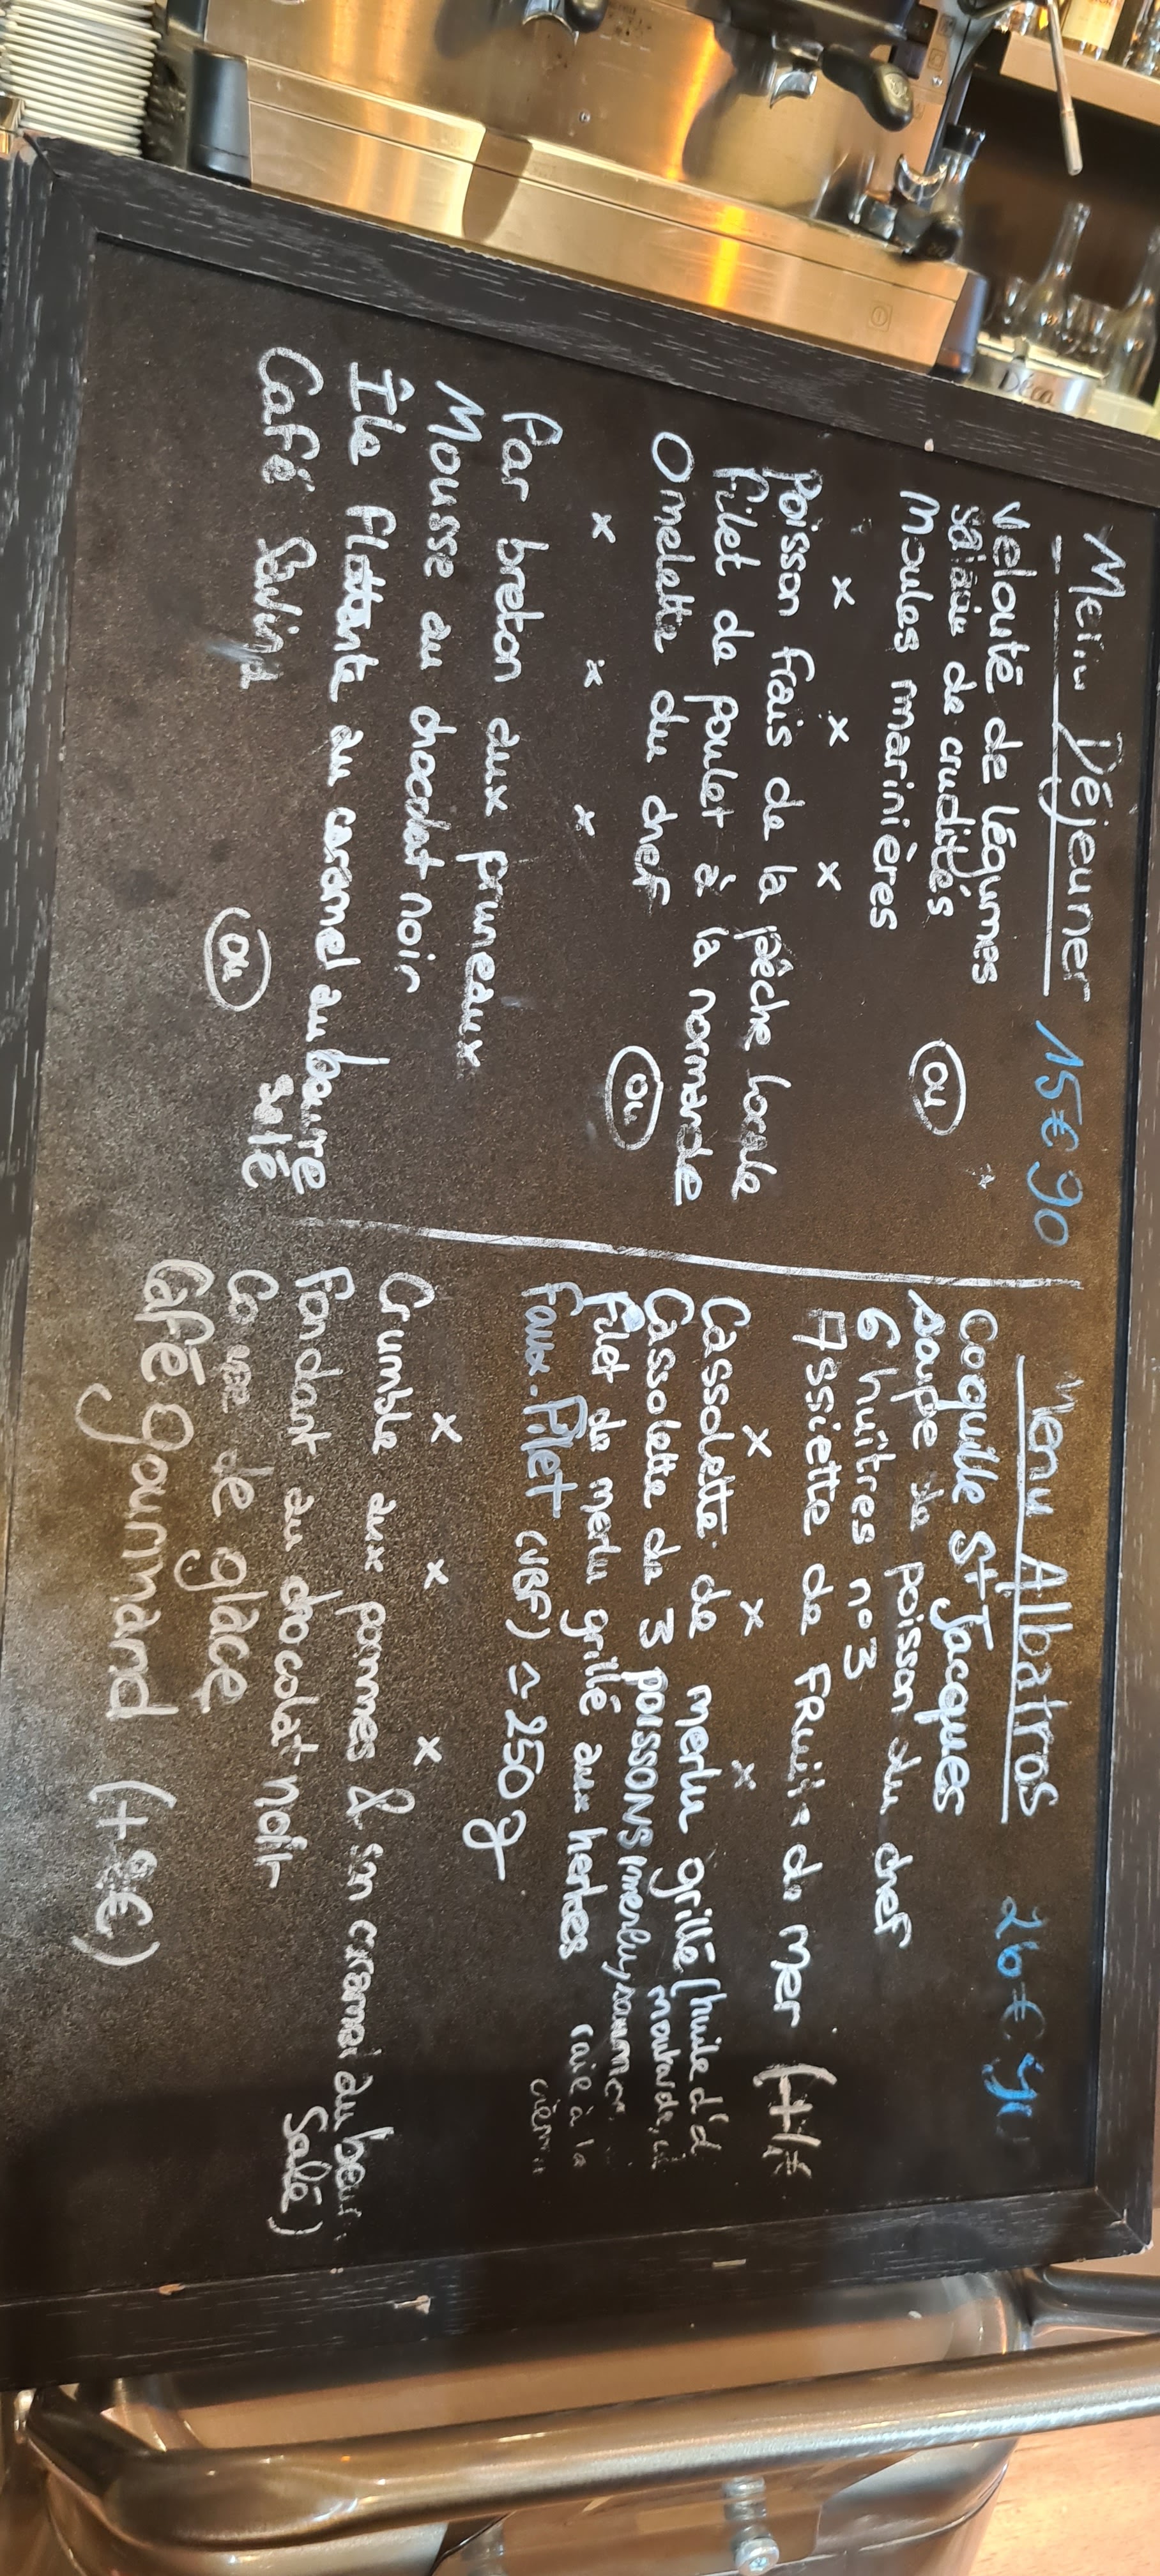 Menu Déjeuner 15€90
Velouté de légumes
salade de crudités
Moules marinières
ou
x x x
Poisson frais de la pêche locale
Filet de poulet à la normande
Omelette du chef
ou
x x x
Far breton aux pruneaux
Mousse au chocolat noir
Île flottante au caramel au beurre
salé
Café
ou
Menu Albatros 26€90
Coquille St Jacques
Soupe de poisson du chef
6 huîtres n°3
Assiette de Fruits de mer (+
x x x
Cassolette de merlu grillé (huile d'
Cassolette de 3 poissons (merlu, saumon,
Filet de merlu grillé aux herbes
Faux-Filet (VBF) ≃ 250g
x x x
Crumble aux pommes & son caramel au beur
Salé)
Fondant au chocolat noir
Coupe de glace
Café gourmand (+2€)
Déca